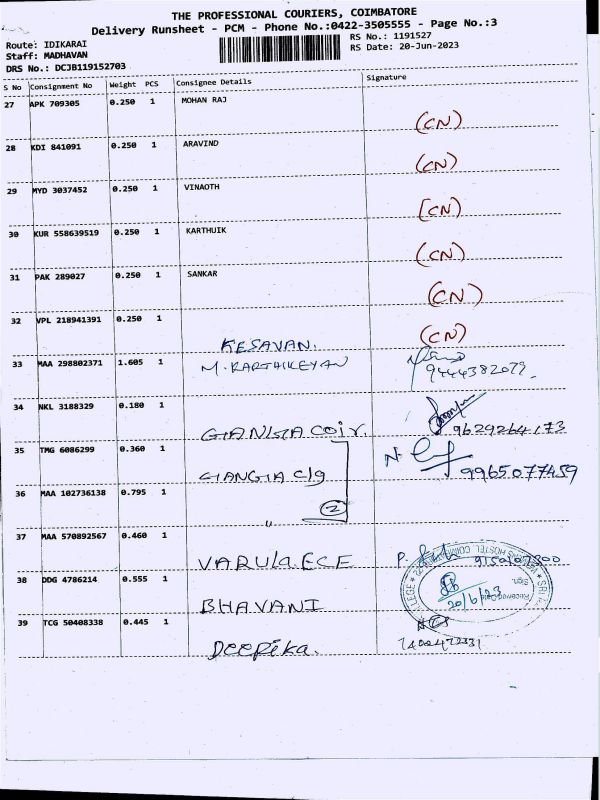 THE PROFESSIONAL COURIERS, COIMBATORE
Delivery Runsheet - PCM - Phone No.:0422-3505555 - Page No.:3
Route: IDIKARAI
Staff: MADHAVAN
DRS No.: DCJB119152703
RS No.: 1191527
RS Date: 20-Jun-2023
S No Consignment No Weight PCS Consignee Details Signature
27 APK 709305 0.250 1 MOHAN RAJ
(CN)
28 KDI 841091 0.250 1 ARAVIND
(CN)
29 MYD 3037452 0.250 1 VINAOTH
(CN)
30 KUR 558639519 0.250 1 KARTHUIK
(CN)
31 PAK 289027 0.250 1 SANKAR
(CN)
32 VPL 218941391 0.250 1
KESAVAN. (CN)
33 MAA 298802371 1.605 1 M. KARTHIKEYAN
9444382079
34 NKL 3188329 0.180 1
GANGA COIR 9629264173
35 TMG 6086299 0.360 1
GANGA C/g 9965077459
36 MAA 102736138 0.795 1
2
"
37 MAA 570892567 0.460 1
VARUla ECE P.
38 DDG 4786214 0.555 1
BHAVANI 20/6/23
39 TCG 50408338 0.445 1
Deepika.